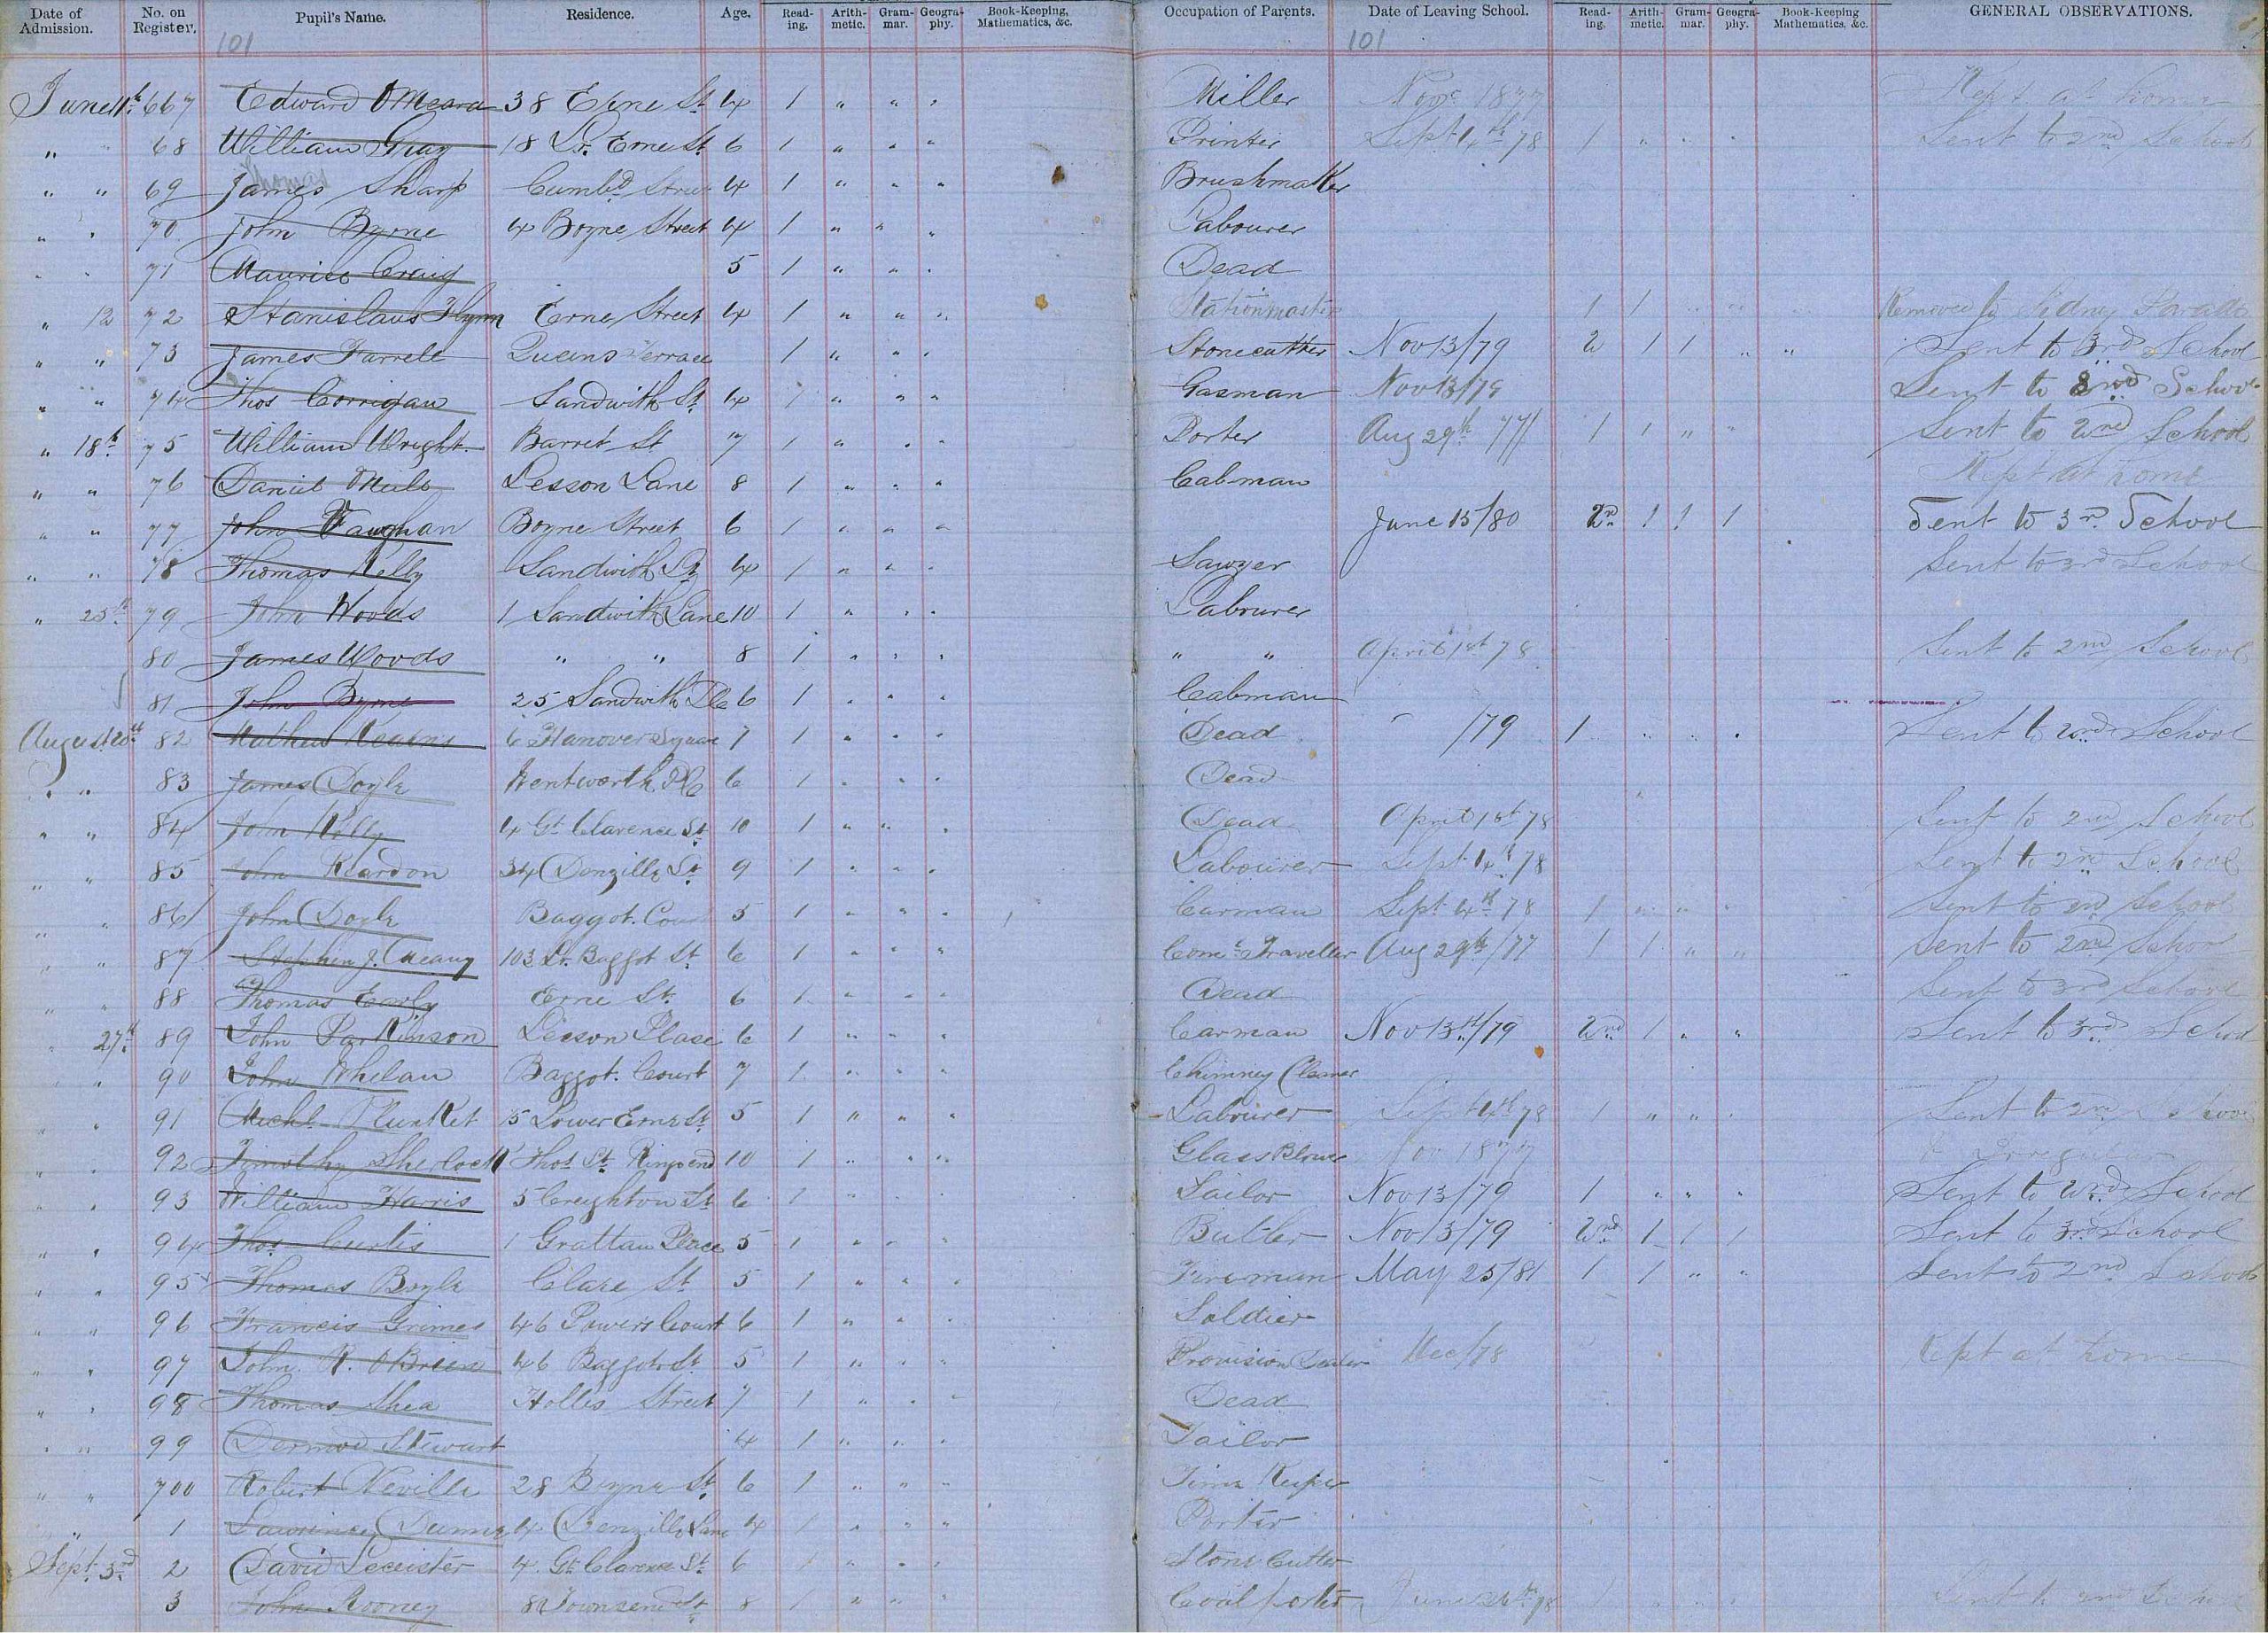 Date of Admission. No. on Register. Pupil's Name. Residence. Age. Reading. Arithmetic. Grammar. Geography. Book-Keeping, Mathematics, &c. Occupation of Parents. Date of Leaving School. Reading. Arithmetic. Grammar. Geography. Book-Keeping Mathematics, &c. GENERAL OBSERVATIONS.
101 101
June 11th 667 Edward OMeara 38 Erne St. 4 1 " " " Miller Novr 1877 Kept at home
" " 68 William Gray 18 Lr. Erne St. 6 1 " " " Printer Sept 4th 78 1 " " " Sent to 2nd School
Thomas
" " 69 James Sharp Cumbd Street 4 1 " " " Brushmaker
" " 70 John Byrne 4 Boyne Street 4 1 " " " Labourer
" " 71 Maurice Craig 5 1 " " " Dead
" 12 72 Stanislaus Flynn Erne Street 4 1 " " " Stationmaster 1 1 " " " Removed to Sidney Parade
" " 73 James Farrell Queens Terrace 1 " " " Stonecutter Nov 13/79 2 1 1 " " Sent to 3rd School
" " 74 Thos Corrigan Sandwith St. 4 1 " " " Gasman Nov 13/79 Sent to School
" 18th 75 William Wright Barret St 7 1 " " " Porter Aug 29th 77 1 1 " " Sent to 2nd School
" " 76 Daniel Lesson Lane 8 1 " " " Cabman Kept at home
" " 77 John Vaughan Boyne Street 6 1 " " " June 15/80 2nd 1 1 1 Sent to 3rd School
" " 78 Thomas Kelly Sandwith 4 1 " " " Sawyer Sent to 3rd School
" 25th 79 John Woods 1 Sandwith Lane 10 1 " " " Labourer
80 James Woods " " 8 1 " " " " " April 1st 78 Sent to 2nd School
81 John Byrne 25 Sandwith Plc 6 1 " " " Cabman
August 20th 82 Mathew Kearns 6 Hanover Square 7 1 " " " Dead " /79 1 " " " Sent to 2nd School
" " 83 James Doyle Wentworth Plc 6 1 " " " Dead
" " 84 John Kelly 4 Gt. Clarence St. 10 1 " " " Dead April 1st 78 Sent to 2nd School
" " 85 John Reardon 34 Denzille St. 9 1 " " " Labourer Sept 4th 78 Sent to 2nd School
" " 86 John Doyle Baggot. Court 5 1 " " " Carman Sept 4th 78 1 " " " Sent to 2nd School
" " 87 Stephen J. Meany 103 Lr. Baggot St. 6 1 " " " Comcl Traveller Aug 29th/77 1 1 " " Sent to 2nd School
" " 88 Thomas Early Erne St. 6 1 " " " Dead Sent to 3rd School
" 27th 89 John Parkinson Leeson Place 6 1 " " " Carman Nov 13th/79 2nd 1 " " Sent to 3rd School
" " 90 John Whelan Baggot. Court 7 1 " " " Chimney Cleaner
" " 91 Michl. Plunket 15 Lower Erne St. 5 1 " " " Labourer Sept 4th 78 1 " " " Sent to 2nd School
" " 92 Timothy Sherlock Thos. St. Ringsend 10 1 " " " Glass Blower Nov 1877 Irregular
" " 93 William Harris 5 Creighton St. 6 1 " " " Sailor Nov 13/79 1 " " " Sent to 2nd School
" " 94 Thos. Curtis 1 Grattan Place 5 1 " " " Butler Nov 13/79 2nd 1 1 1 Sent to 3rd School
" " 95 Thomas Boyle Clare St. 5 1 " " " Fireman May 25/81 1 1 " " Sent to 2nd School
" " 96 Francis Grimes 46 Powers Court 6 1 " " " Soldier
" " 97 John R. OBrien 46 Baggot St. 5 1 " " " Provision Dealer Dec/78 Kept at home
" " 98 Thomas Shea Holles Street 7 1 " " " Dead
" " 99 Dermod Stewart 4 1 " " " Tailor
" " 700 Robert Neville 28 Boyne St. 6 1 " " " Time Keeper
" " 1 Lawrence Dunne 4 Denzille Lane 4 1 " " " Porter
Sept. 3rd 2 David Leceister 4. Gt. Clarence St. 6 1 " " " Stone Cutter
3 John Rooney 82 Townsend St. 8 1 " " " Coal porter June 78 Sent to 2nd School